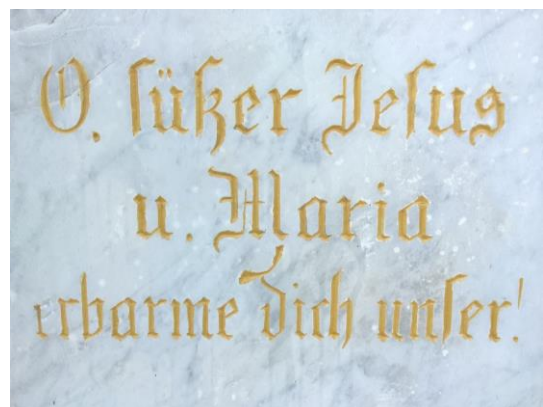 O, süßer Jesus
u. Maria
erbarme dich unser!